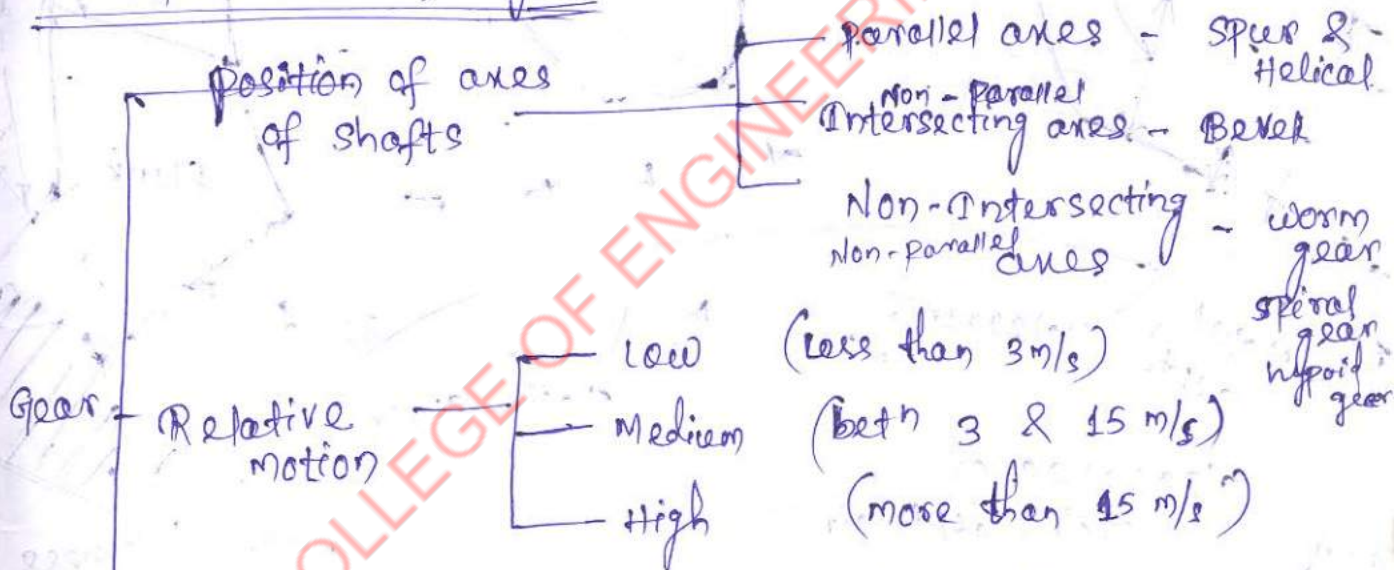 Position of axes
of shafts
Parallel axes - Spur &
Helical
Non-Parallel
Intersecting axes - Bevel
Non-Intersecting - worm
Non-Parallel axes. gear
spiral
gear
hypoid
gear
Gear
Relative
motion
Low (Less than 3 m/s)
Medium (betn 3 & 15 m/s)
High (more than 15 m/s)
COLLEGE OF ENGINEERI